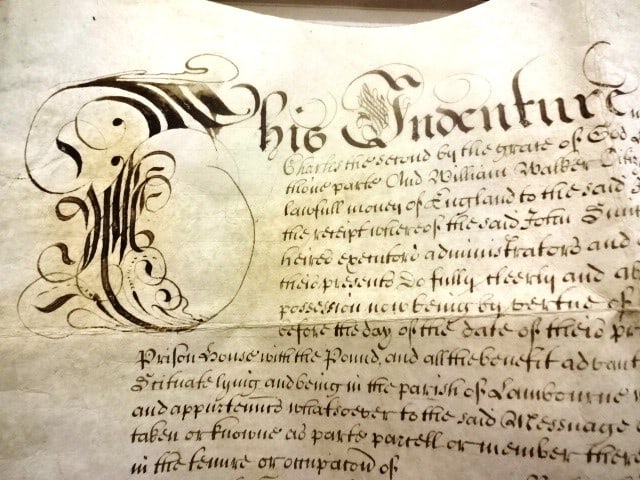 This Indenture
Charles the second by the grace of God
thone parte And William Walker
lawfull money of England to the said
the receipt whereof the said John
heires executors administrators and
theis presents Do fully cleerly and
possession now being by vertue of
before the day of the date of theis
Prison House with the Pound, and all the benefit
Scituate lying and being in the parish of Lambourne
and appurtennts whatsoever to the said Messuage
taken or knowne as parte parcell or member
in the tenure or occupacon of